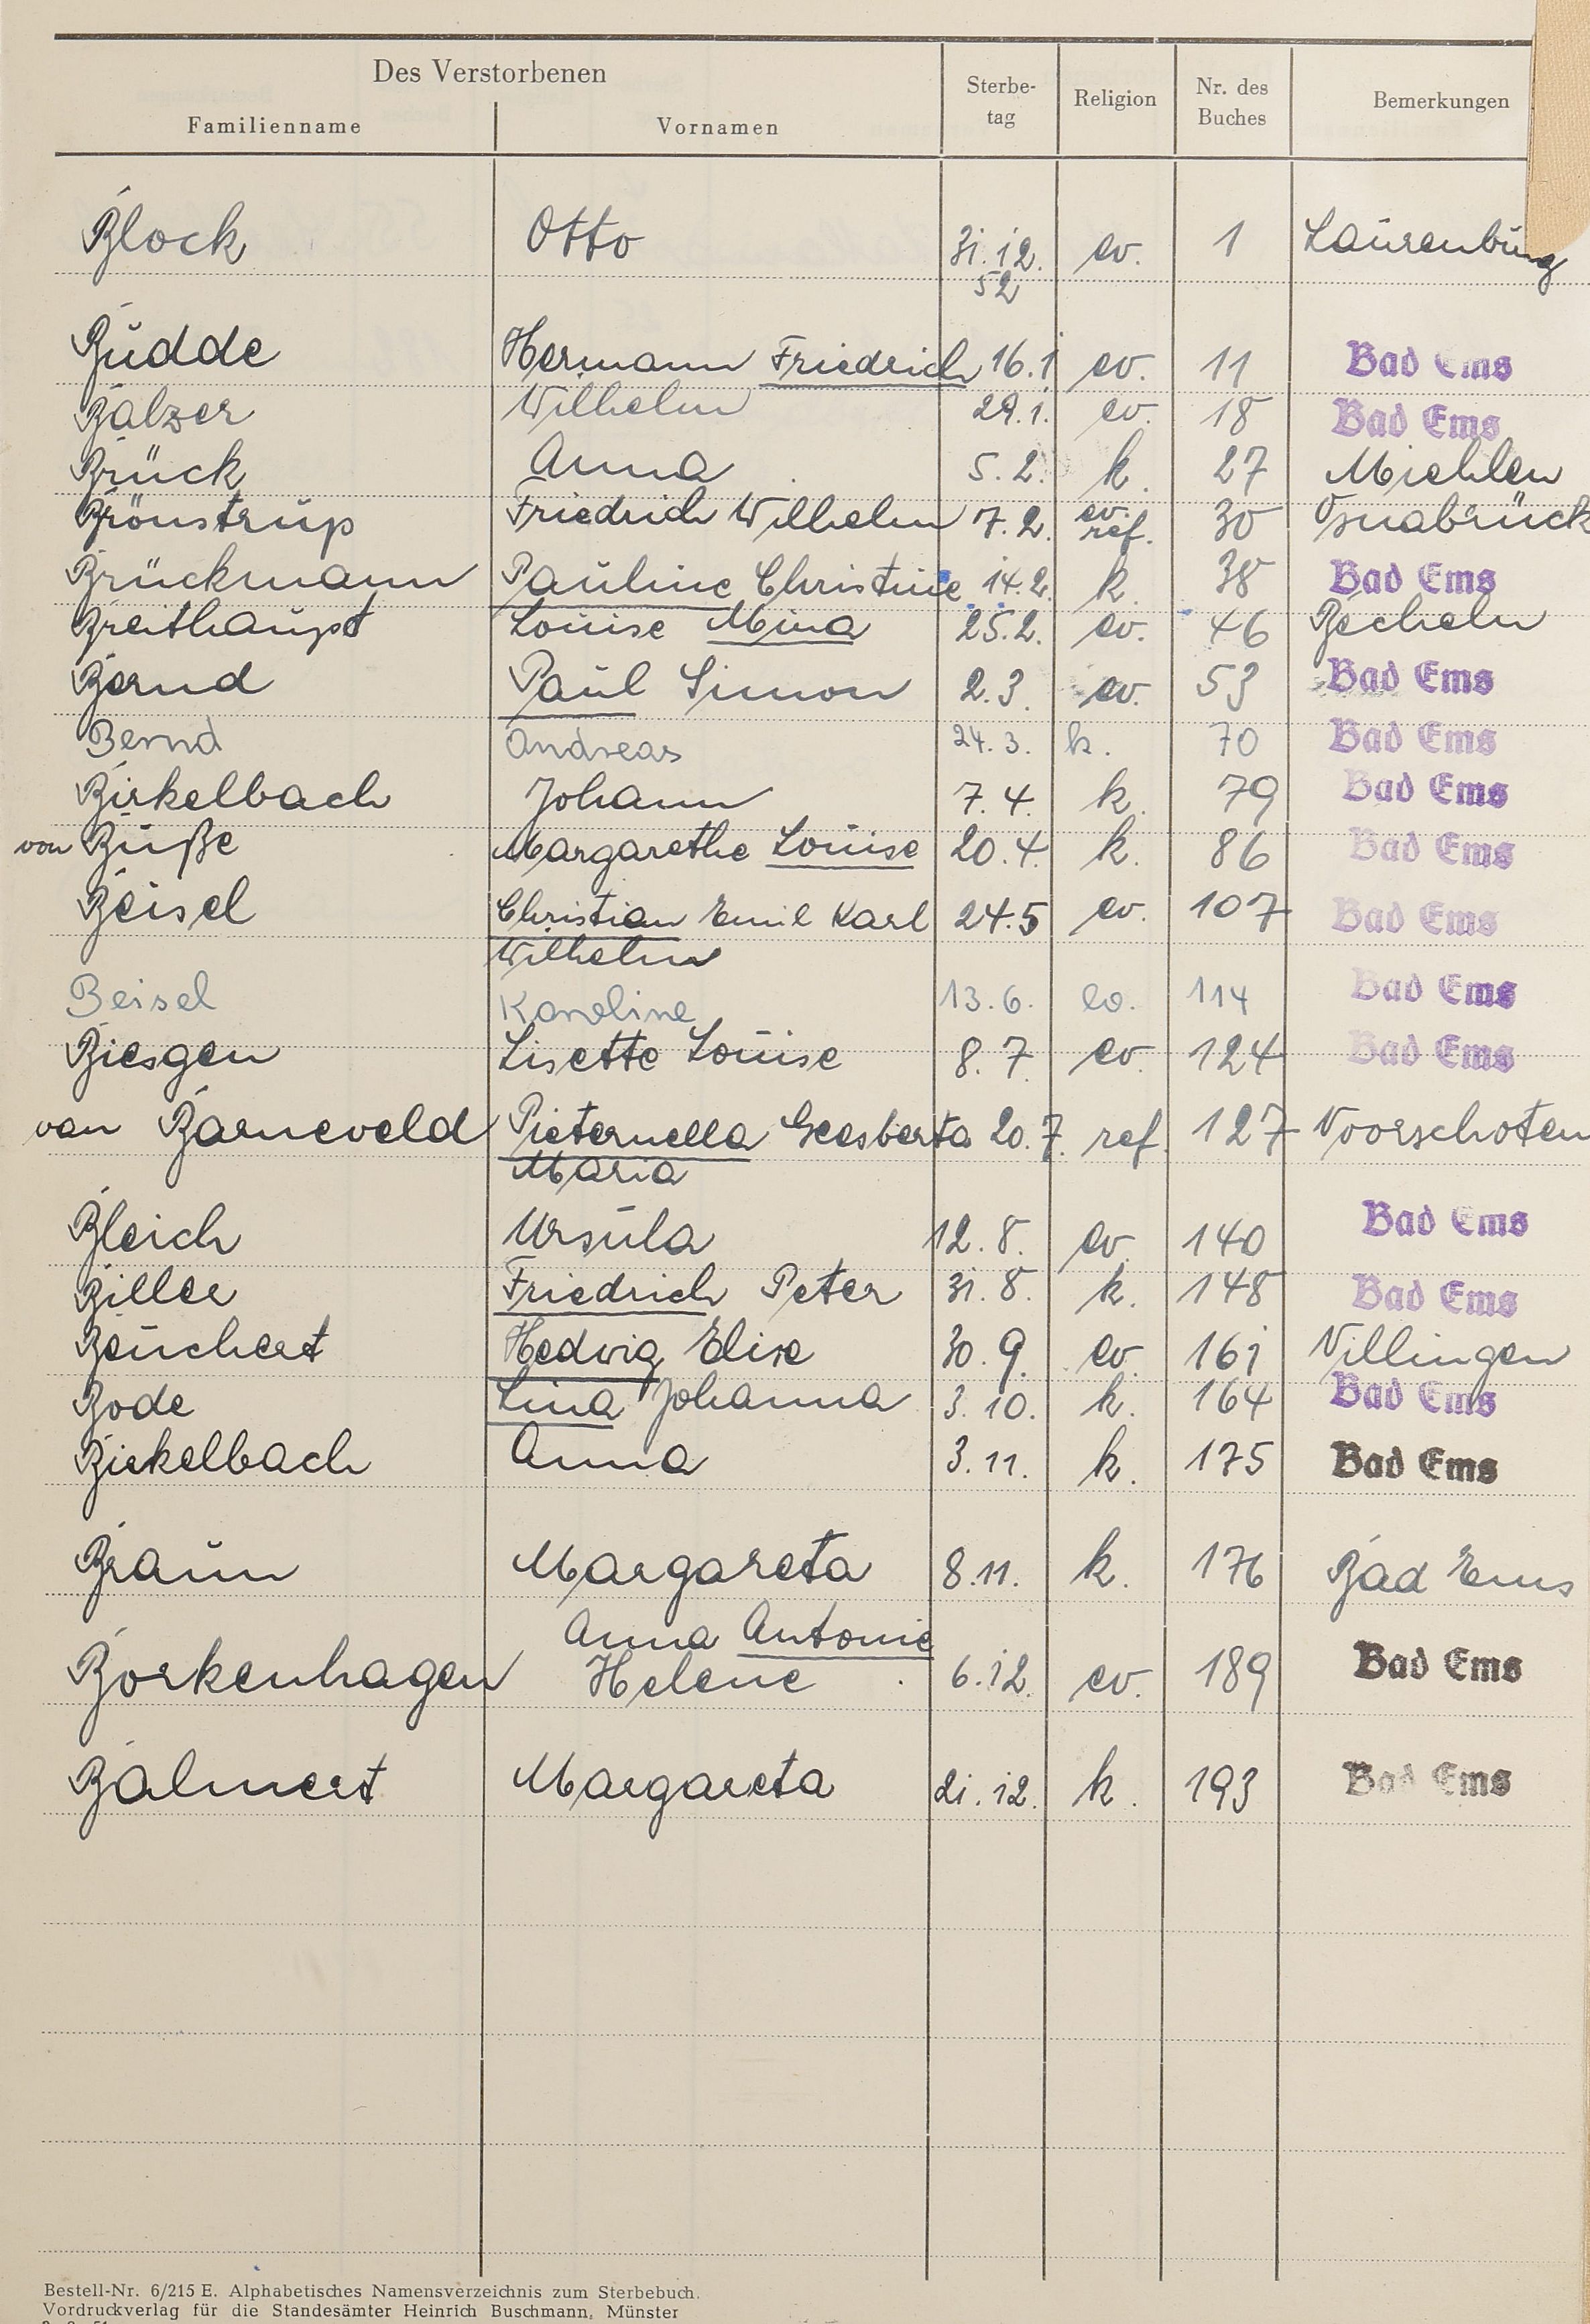 Des Verstorbenen
Familienname Vornamen Sterbe-tag Religion Nr. des Buches Bemerkungen
Block Otto 31.12. 52 ev. 1 Laurenburg
Budde Hermann Friedrich 16.1 ev. 11 Bad Ems
Balzer Wilhelm 29.1. ev. 18 Bad Ems
Brück Anna 5.2. k. 27 Miehlen
Brönstrup Friedrich Wilhelm 7.2. ev. ref. 30 Osnabrück
Brückmann Pauline Christine 14.2. k. 38 Bad Ems
Breithaupt Louise Mina 25.2. ev. 46 Becheln
Bernd Paul Simon 2.3. ev. 53 Bad Ems
Bernd Andreas 24.3. k. 70 Bad Ems
Birkelbach Johann 7.4. k. 79 Bad Ems
von Büße Margarethe Louise 20.4. k. 86 Bad Ems
Beisel Christian Emil Karl 24.5 ev. 107 Bad Ems
Wilhelm
Beisel Karoline 13.6. ev. 114 Bad Ems
Biesgen Lisette Louise 8.7. ev. 124 Bad Ems
van Barneveld Pieternella Geesberta 20.7. ref. 127 Voorschoten
Maria
Bleich Ursula 12.8. ev. 140 Bad Ems
Biller Friedrich Peter 31.8. k. 148 Bad Ems
Beuchert Hedwig Elise 30.9. ev. 161 Villingen
Bode Lina Johanna 3.10. k. 164 Bad Ems
Birkelbach Anna 3.11. k. 175 Bad Ems
Braun Margareta 8.11. k. 176 Bad Ems
Anna Antonie
Borkenhagen Helene 6.12. ev. 189 Bad Ems
Balmert Margareta 21.12. k. 193 Bad Ems
Bestell-Nr. 6/215 E. Alphabetisches Namensverzeichnis zum Sterbebuch.
Vordruckverlag für die Standesämter Heinrich Buschmann, Münster